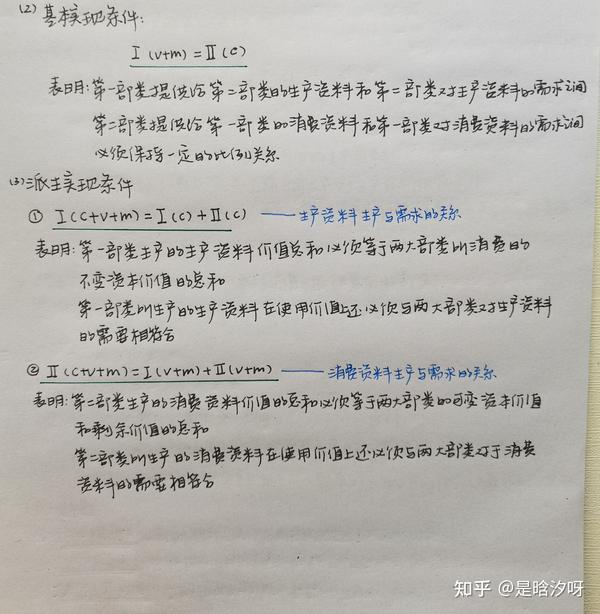 (2) 基本实现条件:
I (v+m) = II (c)
表明: 第一部类提供给第二部类的生产资料和第二部类对生产资料的需求之间
第二部类提供给第一部类的消费资料和第一部类对消费资料的需求之间
必须保持一定的比例关系
(3) 派生实现条件
① I (c+v+m) = I (c) + II (c) ——生产资料生产与需求的关系
表明: 第一部类生产的生产资料价值总和必须等于两大部类所消费的
不变资本价值的总和
第一部类所生产的生产资料在使用价值上还必须与两大部类对生产资料
的需要相符合
② II (c+v+m) = I (v+m) + II (v+m) ——消费资料生产与需求的关系
表明: 第二部类生产的消费资料价值的总和必须等于两大部类的可变资本价值
和剩余价值的总和
第二部类所生产的消费资料在使用价值上还必须与两大部类对于消费
资料的需要相符合
知乎 @是晗汐呀